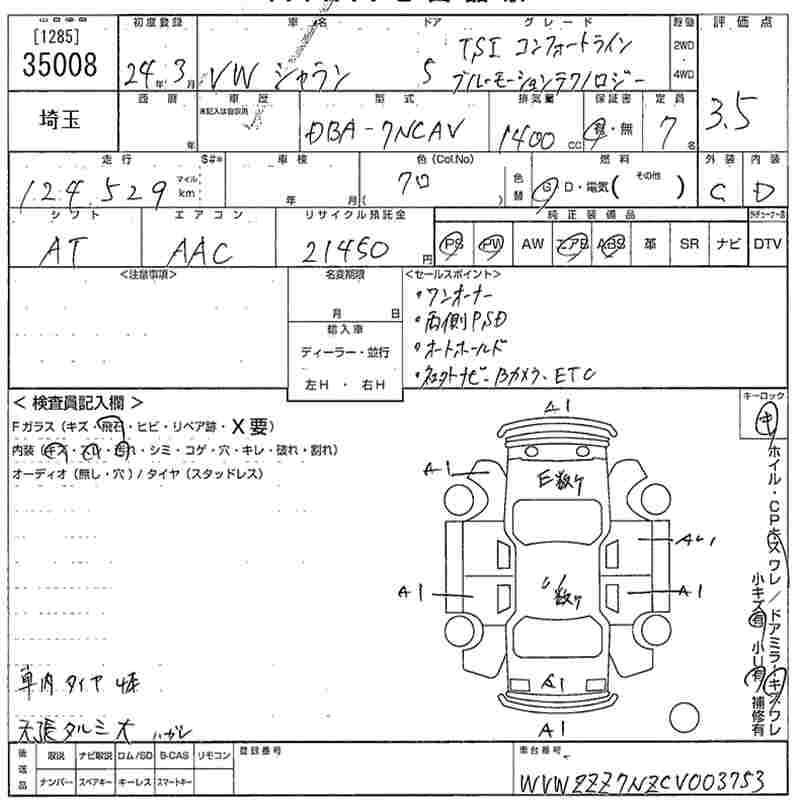 [1285]
35008
初度登録 車名 ドア グレード 駆動 評価点
24年3月 VW シャラン 5 TSI コンフォートライン
ブルーモーションテクノロジー
2WD
4WD
3.5
埼玉
西暦 車歴 型式 排気量 保証書 定員
年 未記入は自家用 DBA-7NCAV 1400cc 有・無 7名
走行 S#* 車検 色(Col.No) 燃料 外装 内装
124,529 マイル km 年 月 クロ ( ) 色替 G D・電気( その他 ) C D
シフト エアコン リサイクル預託金 純正装備品
AT AAC 21450円 PS PW AW エアB ABS 革 SR ナビ DTV
<注意事項> 名変期限 <セールスポイント>
月 日
輸入車
ディーラー・並行
左H・右H
・ワンオーナー
・両側PSD
・オートホールド
・ Bカメラ、ETC
キーロック
キ
<検査員記入欄>
Fガラス(キズ・飛石・ヒビ・リペア跡・X要)
内装(キズ・スレ・汚れ・シミ・コゲ・穴・キレ・破れ・割れ)
オーディオ(無し・穴)/タイヤ(スタッドレス)
A1
A1 E数ケ
AU1
A1 U数ケ A1
A1
A1
ホイル・CPキズ ワレ/ドアミラーキズ ワレ
小キズ有 小U有 補修有
車内 タイヤ 4本
天張タルミ大 ハガレ
後送品 取説 ナビ取説 ロム/SD B-CAS リモコン 登録番号 車台番号
ナンバー スペアキー キーレス スマートキー
WVWZZZ7NZCV003753